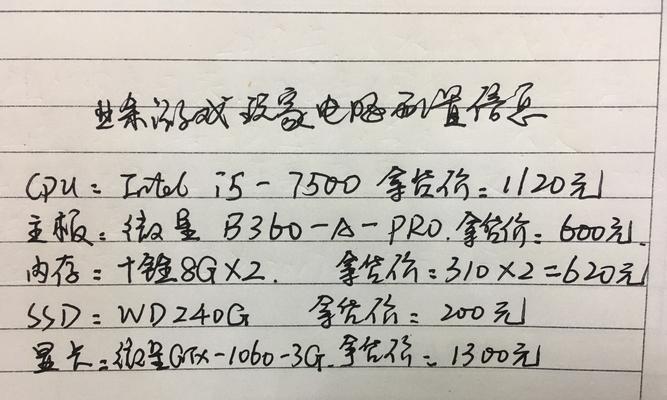 某游戏玩家电脑配置信息
CPU: Intel i5-7500 拿货价: 1120元
主板: 微星 B360-A-PRO. 拿货价: 600元.
内存: 十铨8G×2. 拿货价: 310×2=620元
SSD: WD240G 拿货价: 200元
显卡: 微星GTX-1060-3G. 拿货价: 1300元